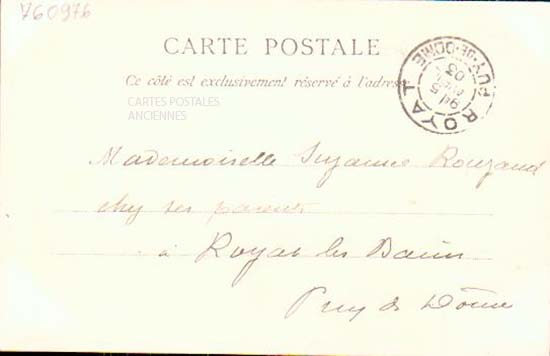 760976
CARTE POSTALE
Ce côté est exclusivement réservé à l'adresse
CARTES POSTALES
ANCIENNES
ROYAT
PUY-DE-DOME
03
Mademoiselle Suzanne Rouzaud
chez ses parents
à Royat les Bains
Puy de Dôme